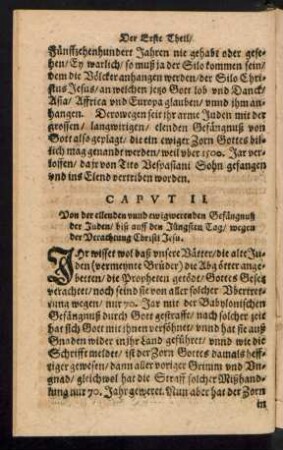 Der Erste Theil/
Fünffzehenhundert Jahren nie gehabt oder gese-
hen/ Ey warlich/ so muß ja der Silo kommen sein/
dem die Völcker anhangen werden/ der Silo Chri-
stus Jesus/ an welchen jetzo Gott lob vnd Danck/
Asia/ Affrica vnd Europa glauben/ vnnd ihm an-
hangen. Derowegen seit ihr arme Juden mit der
grossen/ langwirigen/ elenden Gefängnuß von
Gott also geplagt/ die ein ewiger Zorn Gottes bil-
lich mag genandt werden/ weil vber 1500. Jar ver-
lossen/ da jr von Tito Vespasiani Sohn gefangen
vnd ins Elend vertriben worden.
CAPVT II.
Von der ellenden vnnd ewigwerenden Gefängnuß
der Juden/ biß auff den Jüngsten Tag/ wegen
der Verachtung Christi Jesu.
IHr wisset wol daß vnsere Vätter/ die alte Ju-
den (vermeynte Brüder) die Abgötter ange-
betten/ die Propheten getödt/ Gottes Gesetz
verachtet/ noch seind sie von aller solcher Vbertret-
tung wegen/ nur 70. Jar mit der Babylonischen
Gefängnuß durch Gott gestrafft/ nach solcher zeit
hat sich Gott mit ihnen versöhnet/ vnnd hat sie auß
Gnaden wider in ihr Land geführet/ vnnd wie die
Schrifft meldet/ ist der Zorn Gottes damals heff-
tiger gewesen/ dann aller voriger Grimm vnd Vn-
gnad/ gleichwol hat die Straff solcher Mißhand-
lung nur 70. Jahr geweret. Nun aber hat der Zorn